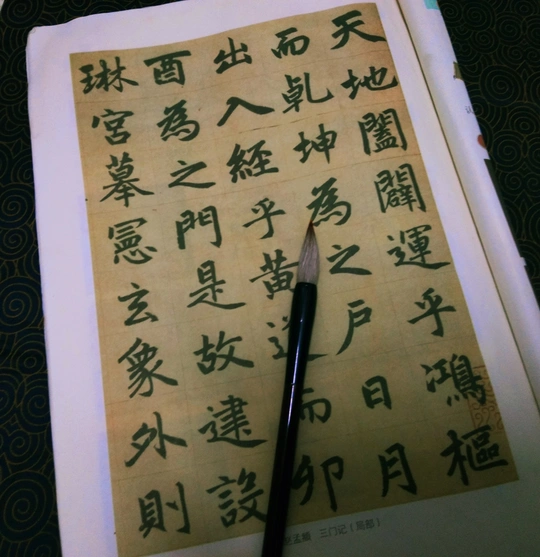 天地闔闢運乎鴻樞
而乾坤為之戶日月
出入經乎黃道而卯
酉為之門是故建設
琳宮摹憲玄象外則
孟頫 三门记（局部）